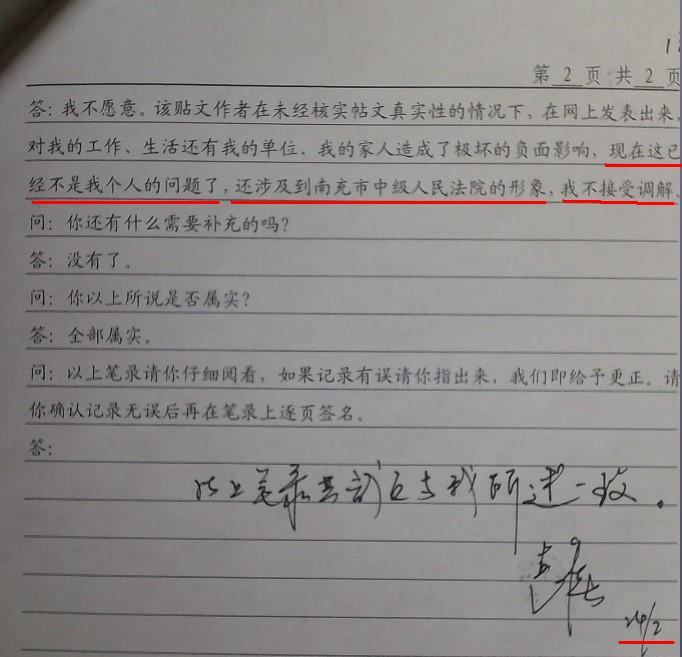 第 2 页 共 2 页
答：我不愿意。该贴文作者在未经核实帖文真实性的情况下，在网上发表出来，
对我的工作、生活还有我的单位、我的家人造成了极坏的负面影响，现在这已
经不是我个人的问题了，还涉及到南充市中级人民法院的形象，我不接受调解。
问：你还有什么需要补充的吗？
答：没有了。
问：你以上所说是否属实？
答：全部属实。
问：以上笔录请你仔细阅看，如果记录有误请你指出来，我们即给予更正。请
你确认记录无误后再在笔录上逐页签名。
答：
以上笔录我已看与我所述一致。
24/2